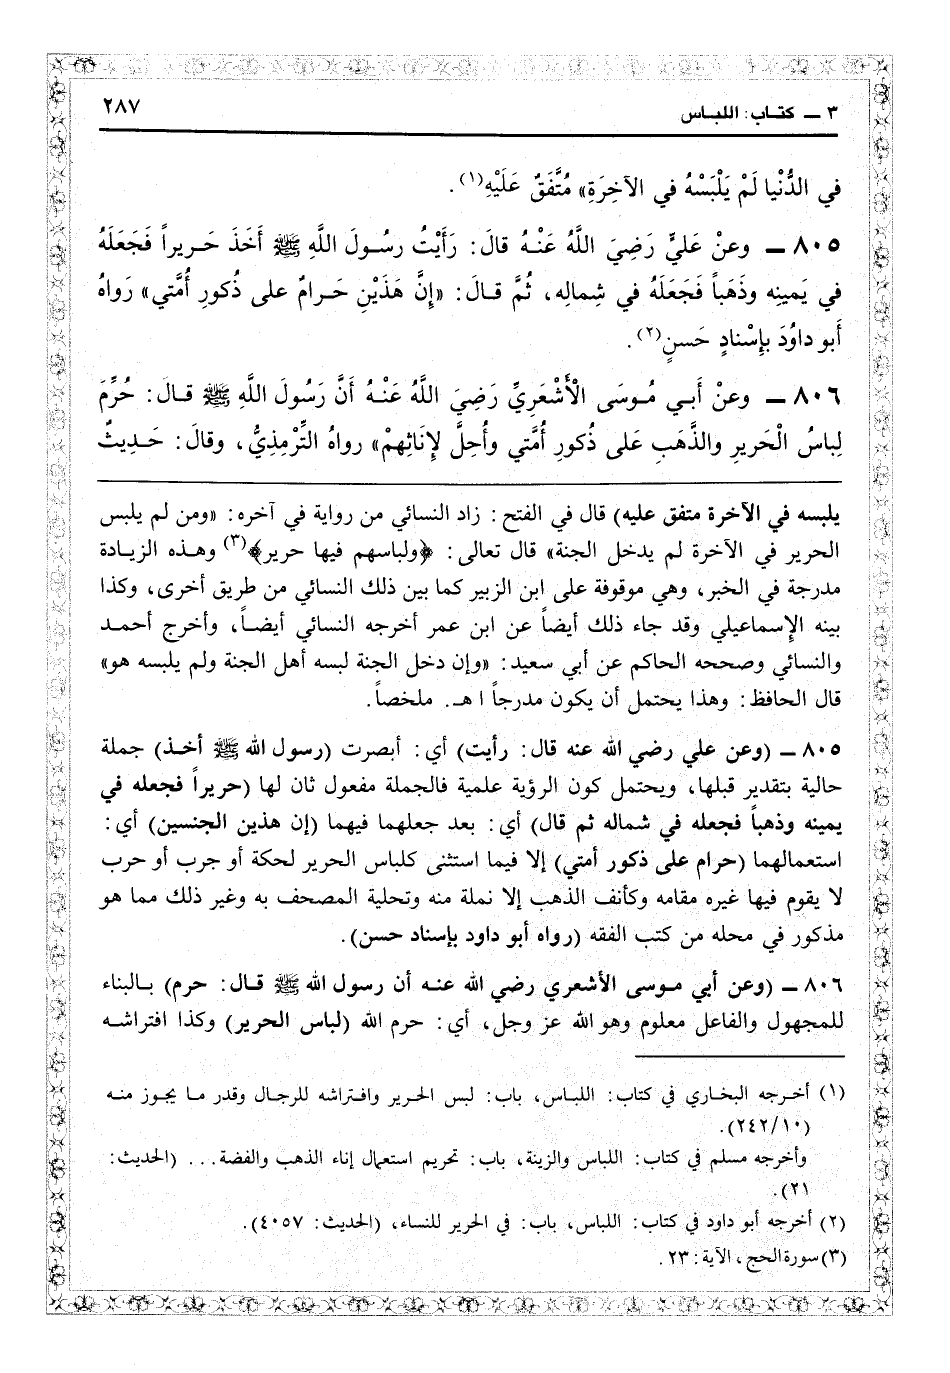 ٣ ــ كتـاب: اللبـاس ٢٨٧
في الدُّنْيا لَمْ يَلْبَسْهُ في الآخِرَةِ» مُتَّفَقٌ عَلَيْهِ(١).
٨٠٥ ــ وعنْ عَليٍّ رَضِيَ اللَّهُ عَنْـهُ قالَ: رَأَيْتُ رسُـولَ اللَّهِ ﷺ أَخَذَ حَـريراً فَجَعَلَهُ
في يَمينِه وذَهَباً فَجَعَلَهُ في شِمالِه، ثُمَّ قـالَ: «إِنَّ هَذَيْنِ حَـرامٌ على ذُكورِ أُمَّتي» رَواهُ
أَبو داوُدَ بإِسْنادٍ حَسنٍ(٢).
٨٠٦ ــ وعنْ أَبـي مُـوسَى الْأَشْعَرِيِّ رَضِيَ اللَّهُ عَنْـهُ أَنَّ رَسُولَ اللَّهِ ﷺ قـالَ: حُرِّمَ
لِباسُ الْحَريرِ والذَّهَبِ عَلى ذُكورِ أُمَّتي وأُحِلَّ لِإنَاثِهِمْ» رواهُ التِّرْمِذِيُّ، وقالَ: حَـديثٌ
يلبسه في الآخرة متفق عليه) قال في الفتح: زاد النسائي من رواية في آخره: «ومن لم يلبس
الحرير في الآخرة لم يدخل الجنة» قال تعالى: ﴿ولباسهم فيها حرير﴾(٣) وهـذه الزيـادة
مدرجة في الخبر، وهي موقوفة على ابن الزبير كما بين ذلك النسائي من طريق أخرى، وكذا
بينه الإسماعيلي وقد جاء ذلك أيضاً عن ابن عمر أخرجه النسائي أيضـاً، وأخرج أحمـد
والنسائي وصححه الحاكم عن أبي سعيد: «وإن دخل الجنة لبسه أهل الجنة ولم يلبسه هو»
قال الحافظ: وهذا يحتمل أن يكون مدرجاً ا هـ. ملخصاً.
٨٠٥ ــ (وعن علي رضي الله عنه قال: رأيت) أي: أبصرت (رسول الله ﷺ أخـذ) جملة
حالية بتقدير قبلها، ويحتمل كون الرؤية علمية فالجملة مفعول ثان لها (حريراً فجعله في
يمينه وذهباً فجعله في شماله ثم قال) أي: بعد جعلهما فيهما (إن هذين الجنسين) أي:
استعمالهما (حرام على ذكور أمتي) إلا فيما استثنى كلباس الحرير لحكة أو جرب أو حرب
لا يقوم فيها غيره مقامه وكأنف الذهب إلا نملة منه وتحلية المصحف به وغير ذلك مما هو
مذكور في محله من كتب الفقه (رواه أبو داود بإسناد حسن).
٨٠٦ ــ (وعن أبي مـوسى الأشعري رضي الله عنـه أن رسول الله ﷺ قـال: حرم) بـالبناء
للمجهول والفاعل معلوم وهو الله عز وجل، أي: حرم الله (لباس الحرير) وكذا افتراشـه
(١) أخـرجه البخـاري في كتاب: اللبـاس، باب: لبس الحـرير وافـتراشه للرجال وقدر مـا يجوز منـه
(٢٤٢/١٠).
وأخرجه مسلم في كتاب: اللباس والزينة، باب: تحريم استعمال إناء الذهب والفضة... (الحديث:
٢١).
(٢) أخرجه أبو داود في كتاب: اللباس، باب: في الحرير للنساء، (الحديث: ٤٠٥٧).
(٣) سورة الحج، الآية: ٢٣.